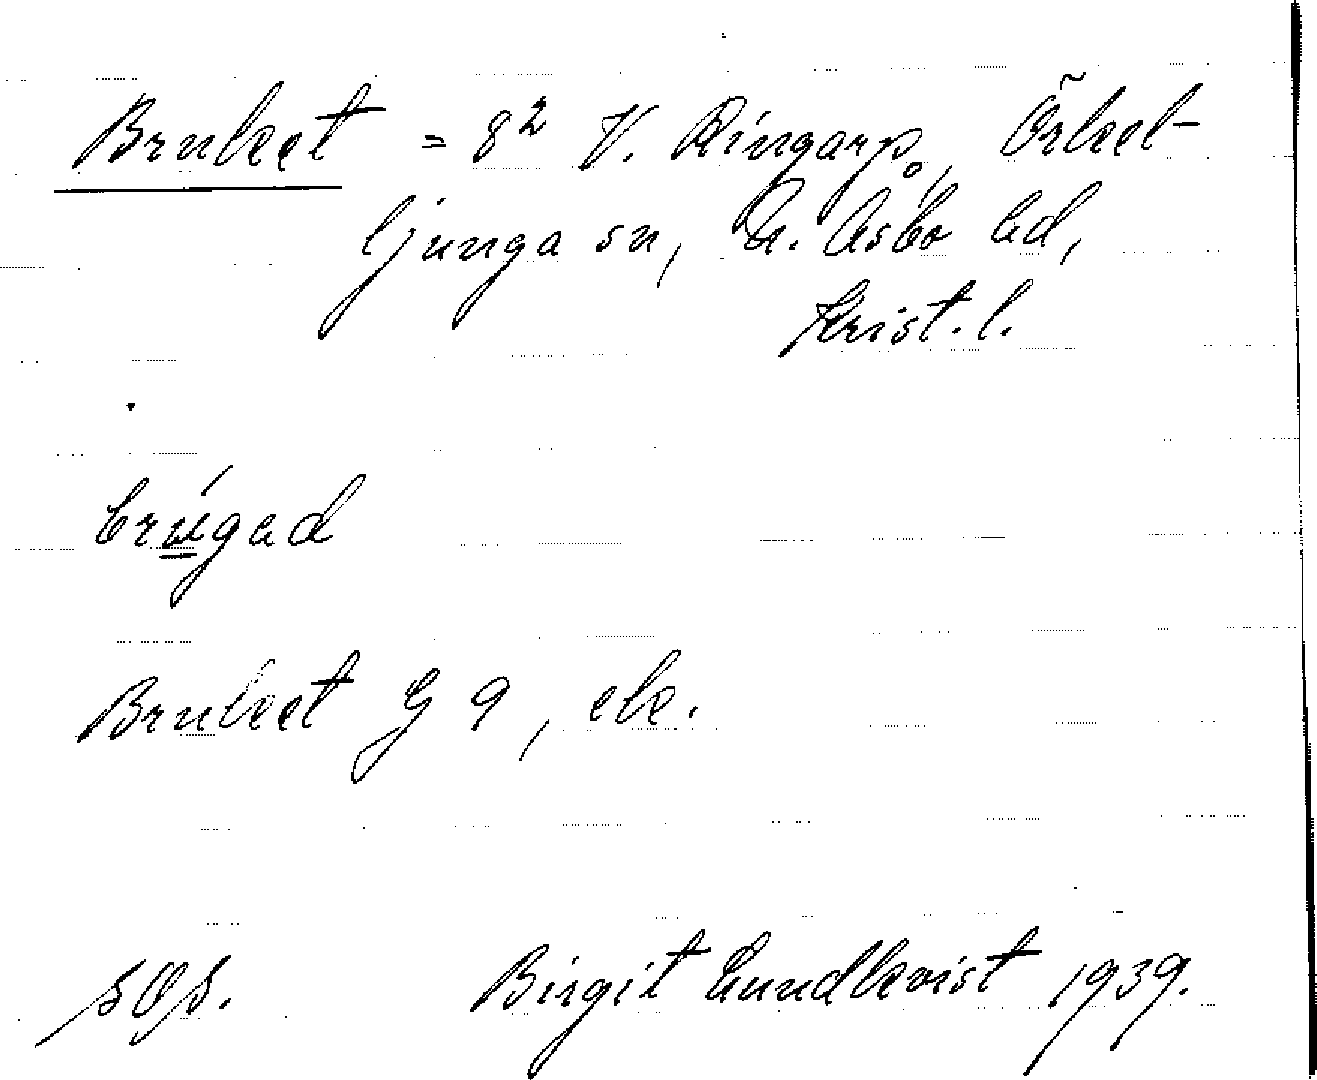 Bruket = 8² V. Ringarp, Örkel-
ljunga sn, N. Åsbo hd,
Krist. l.
brúgad
Bruket G 9, ek.
sOs.
Birgit Lundkvist 1939.